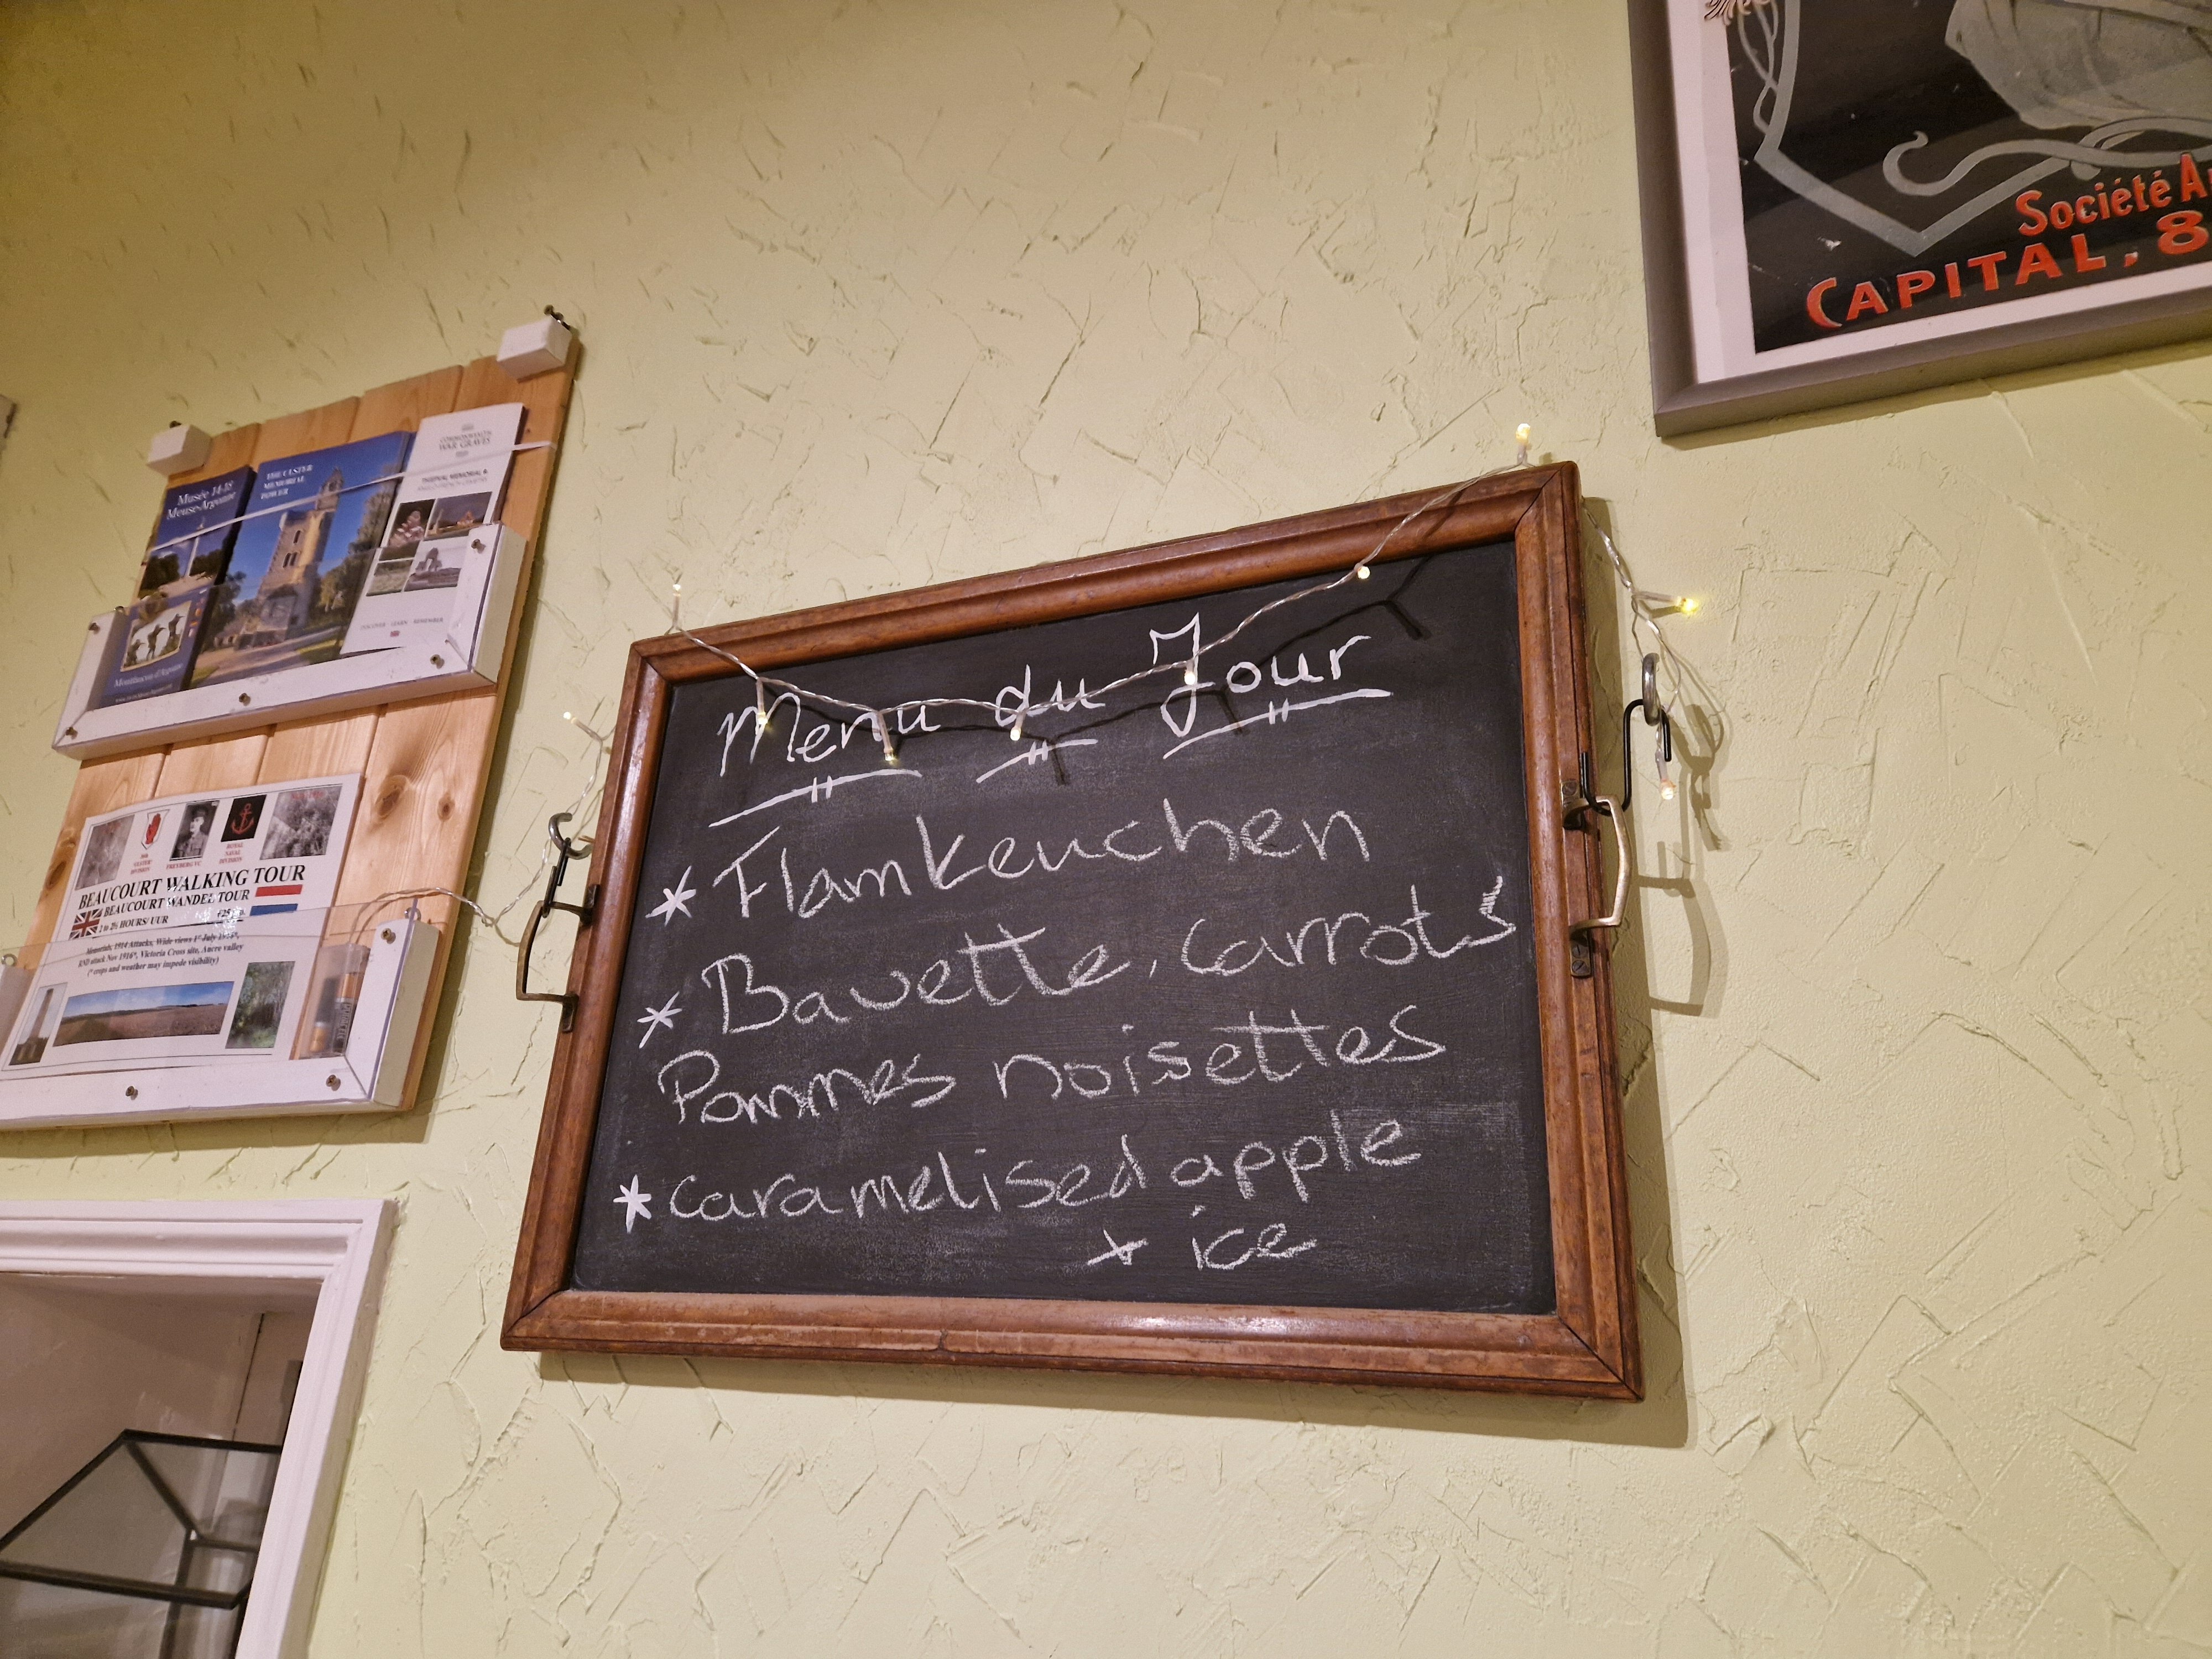 Société
CAPITAL, 8
Musée 14-18
Meuse-Argonne
THE ULSTER
MEMORIAL
TOWER
COMMONWEALTH
WAR GRAVES
THIEPVAL MEMORIAL &
DISCOVER · LEARN · REMEMBER
Montfaucon d'Argonne
Menu du Jour
* Flamkeuchen
* Bavette, Carrots
Pommes noisettes
* caramelised apple
+ ice
36th
ULSTER
DIVISION
FREYBERG VC
ROYAL
NAVAL
DIVISION
BEAUCOURT WALKING TOUR
BEAUCOURT WANDEL TOUR
2 to 2½ HOURS/ UUR
Memorials; 1914 Attacks; Wide views 1st July
RND attack Nov 1916*, Victoria Cross site, Ancre valley
(* crops and weather may impede visibility)